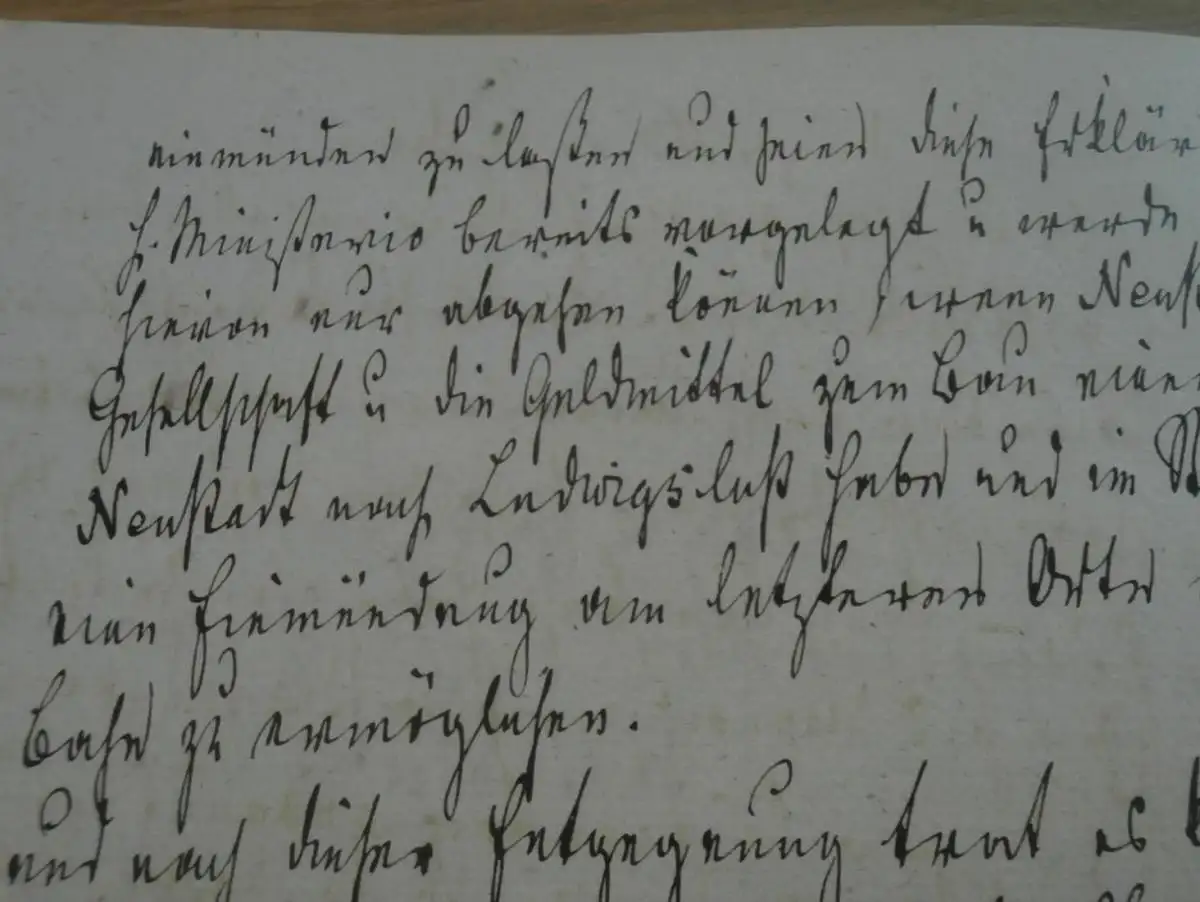 einmünden zu laßen und seien diese Erklär
H. Ministerio bereits vorgelegt u werde
hievon nur abgehen können, wenn Neust
Gesellschaft u die Geldmittel zum Bau einer
Neustadt nach Ludwigslust habe und im St
eine Einmündung am letzteren Orte
Bahn zu ermöglichen.
und nach dieser Entgegnung trat es